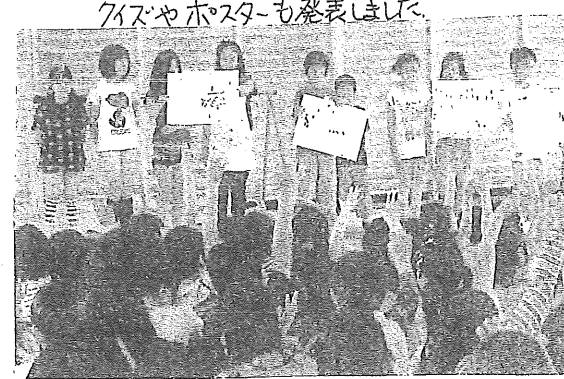 クイズやポスターも発表しました。